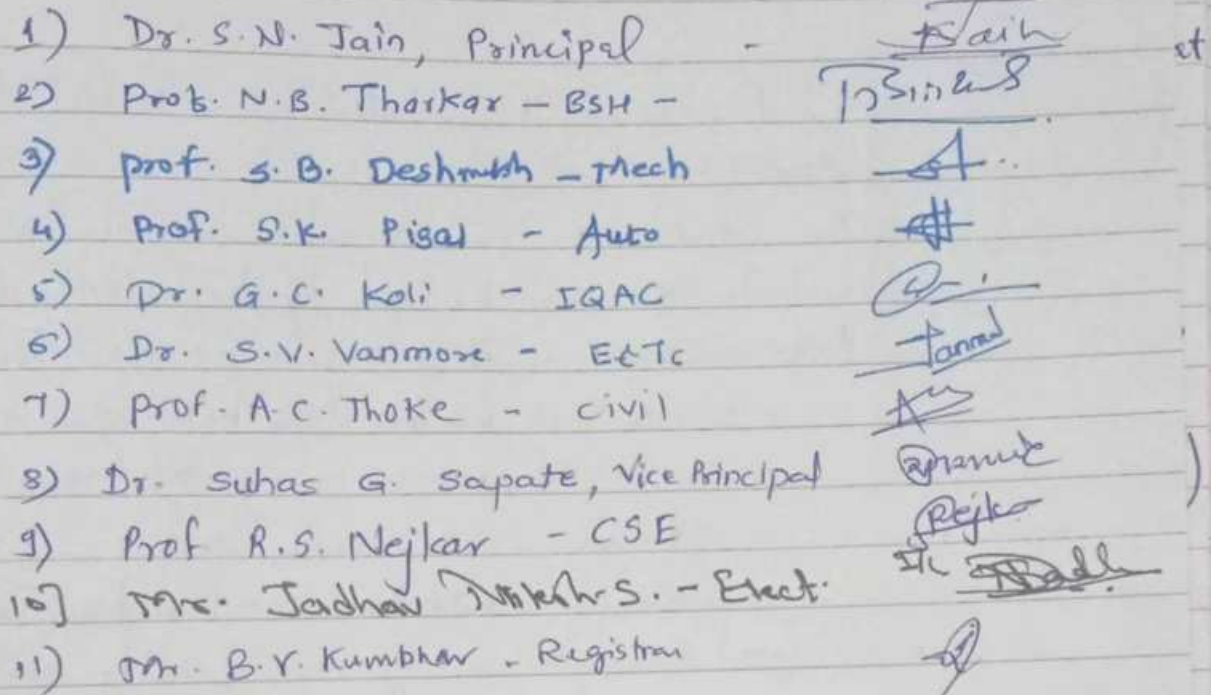 1) Dr. S. N. Jain, Principal - et
2) Prof. N.B. Tharkar - BSH -
3) prof. S. B. Deshmukh - Mech
4) Prof. S.K. Pisal - Auto
5) Dr. G.C. Koli - IQAC
6) Dr. S.V. Vanmore - E&Tc
7) Prof. A.C. Thoke - civil
8) Dr. Suhas G. Sapate, Vice Principal )
9) Prof R.S. Nejkar - CSE
10] Mr. Jadhav S. - Elect. I/c
11) Mr. B.V. Kumbhar - Registrar